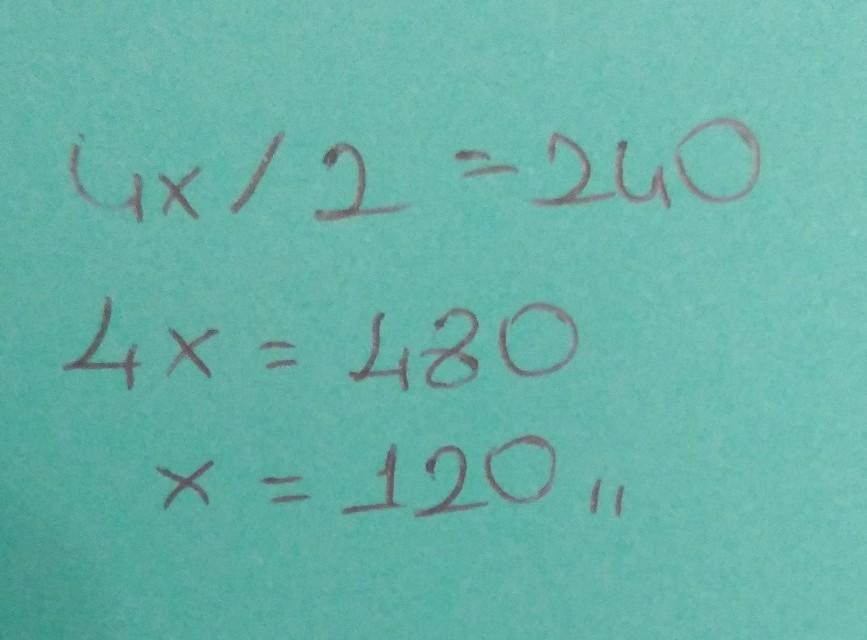 4x / 2 = 240
4x = 480
x = 120 "